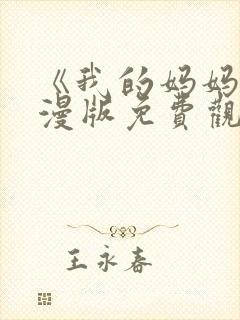 《我的妈妈
漫版免費觀
王永春